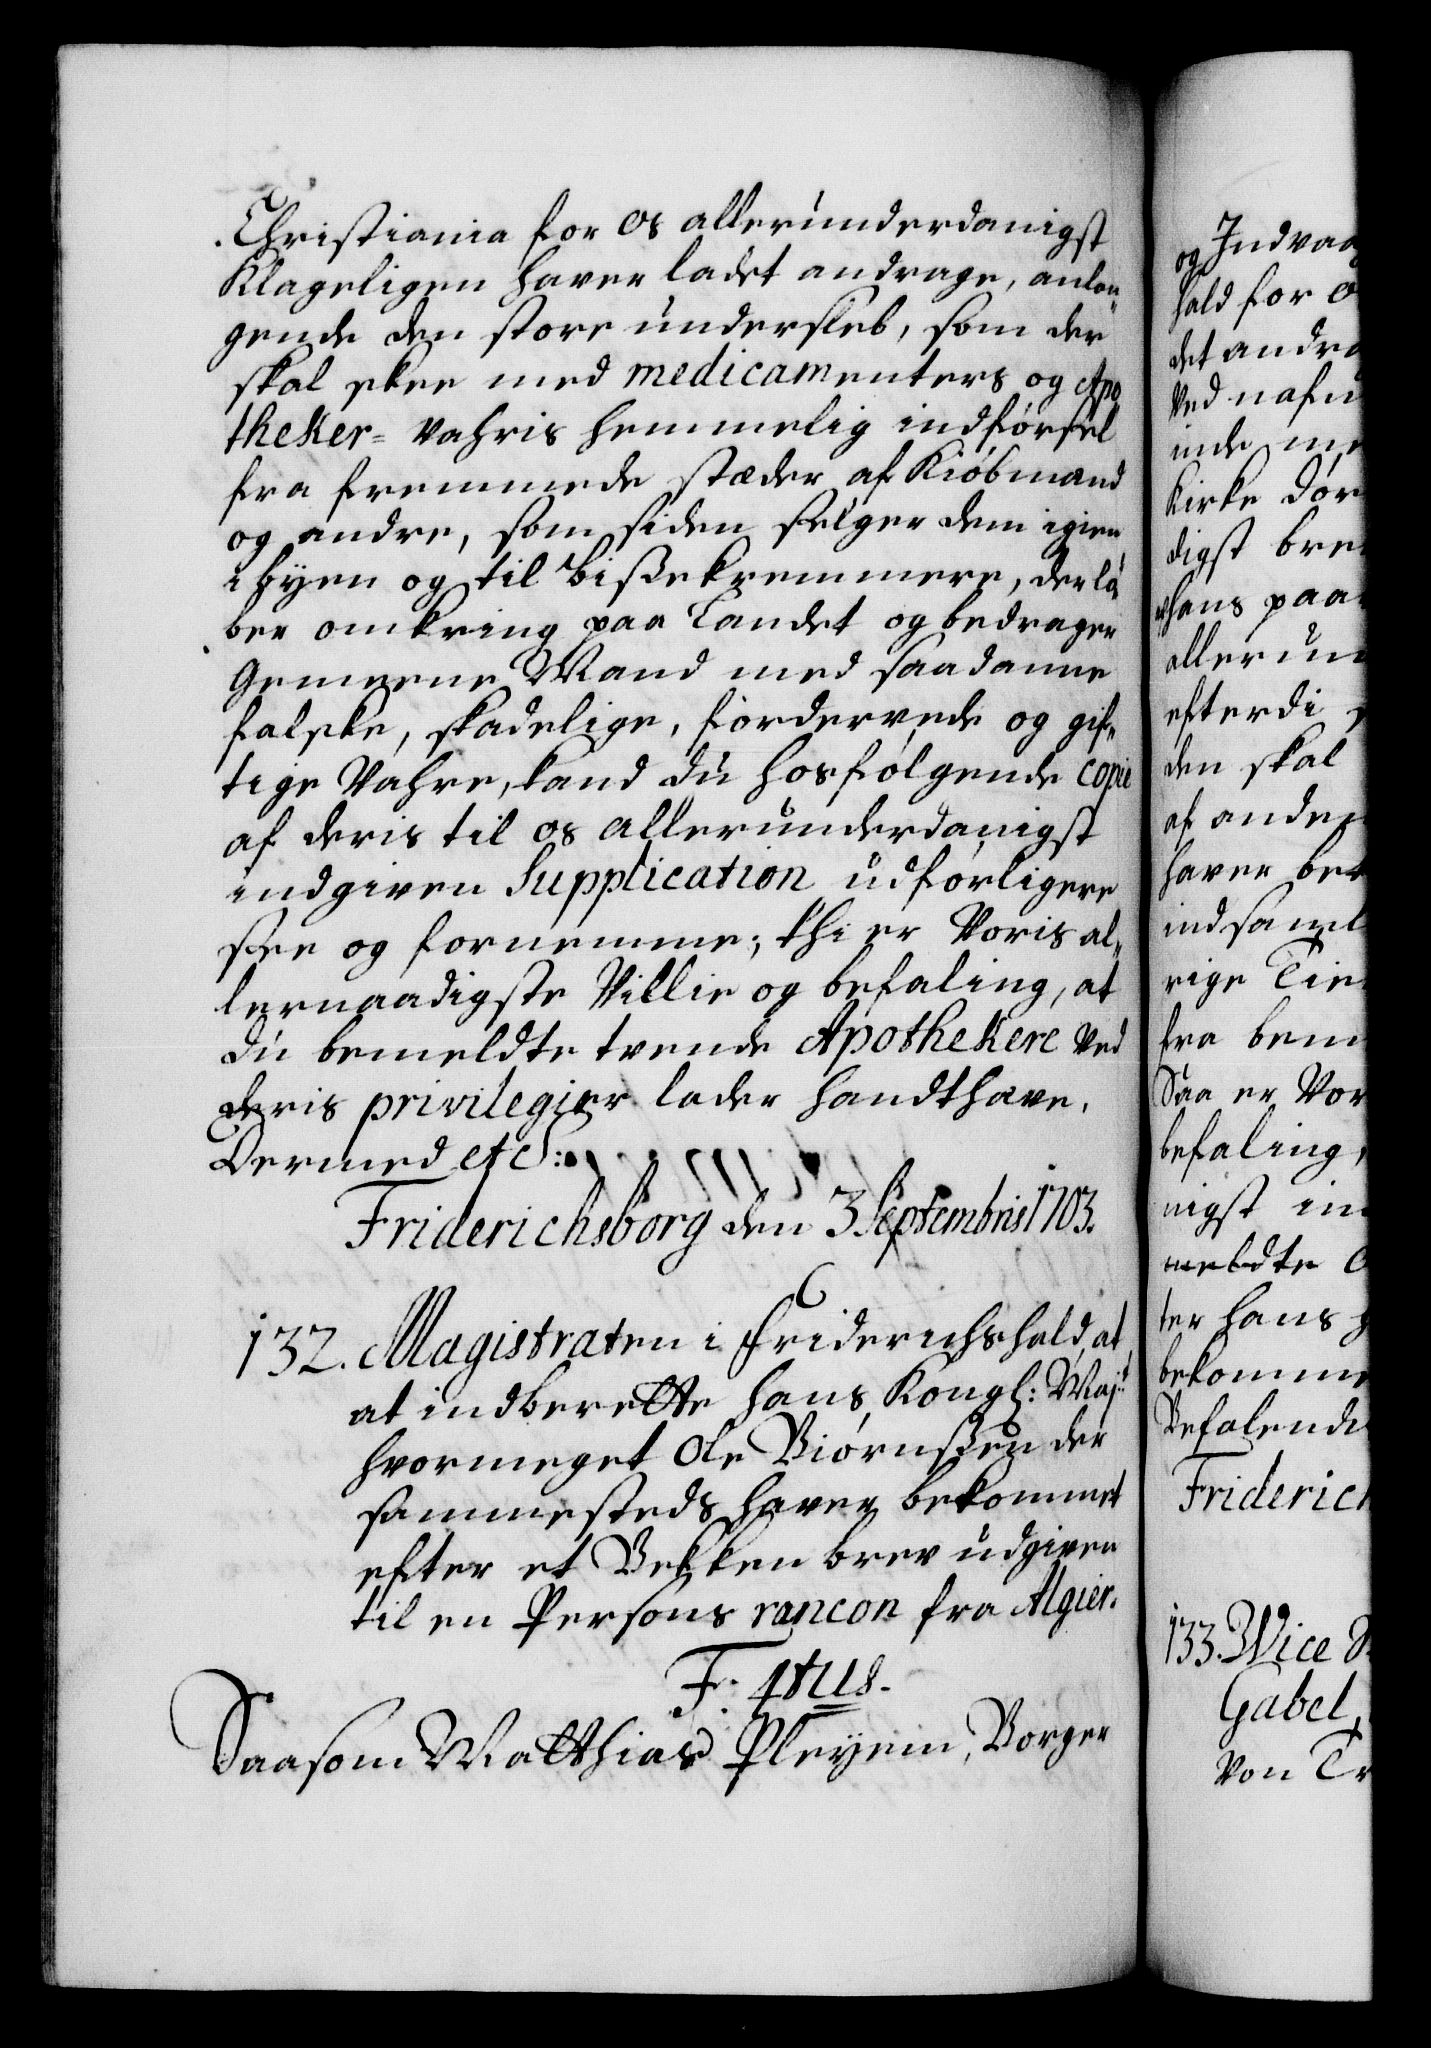 Christiania for os allerunderdanigst
Klageligen haver ladet andrage, anlan¬
gende den store underslæb, som der
skal skee med medicamenters og Apo
theker= Vahris hemmelig indførsel
fra fremmede stæder af Kiøbmænd
og andre, som siden selger dem igien
i byen og til bissekremmere, der lø
ber omkring paa Landet og bedrager
Gemeene Mand med saadanne
falske, skadelige, fordervede og gif¬
tige Vahre, kand du hosfølgende copie
af deris til os allerunderdanigst
indgiven Supplication udførligere
see og fornemme; thi er Voris al¬
lernaadigste Villie og befaling, at
du bemeldte tvende Apothekere ved
deris privilegier lader handthæve.
Dermed etc:
Friderichsborg den 3 Septembris 1703.
132. Magistraten i Friderichshald, at
at indberette hans Kongl: Majt
hvormeget Ole Biørnssen der
sammesteds haver bekommet
efter et Bekken brev udgiven
til en Persons rancon fra Algier.
F. 4tus.
Saasom Matthias Pleyem, Borger
og Indvaa
hald for o
det andra
Ved nafn
inde me
Kirke Dør
digst bre
hans paa
allerun
efterdi s
den skal
af anden
haver bek
indsaml
rige Tie
fra bem
Saa er Vor
befaling,
nigst in
meldte O
ter hans g
bekomme
Befalendi
Friderich
133. Vice S
Gabel,
von Tr